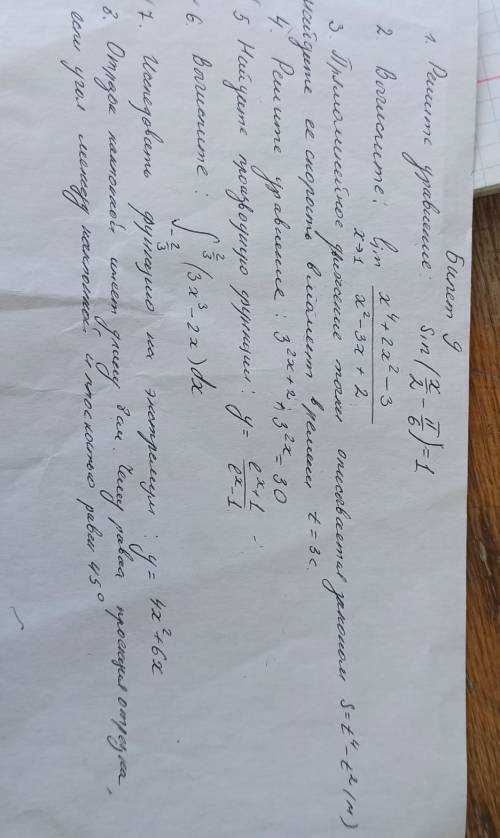 Билет 9
1. Решите уравнение: sin(x/2 - π/6) = 1
2. Вычислите: lim x→1 (x⁴+2x²-3)/(x²-3x+2)
3. Прямолинейное движение точки описывается законом s=t⁴-t²(м)
найдите ее скорость в момент времени t=3с.
4. Решите уравнение: 3^(2x+2) + 3^(2x) = 30
5 Найдите производную функции: y = (eˣ+1)/(eˣ-1)
6. Вычислите: ∫_(-2/3)^(2/3) (3x³-2x)dx
7. Исследовать функцию на экстремум: y = 4x²+6x
8. Отрезок наклонной имеет длину 8 см. Чему равна проекция отрезка,
если угол между наклонной и плоскостью равен 45°